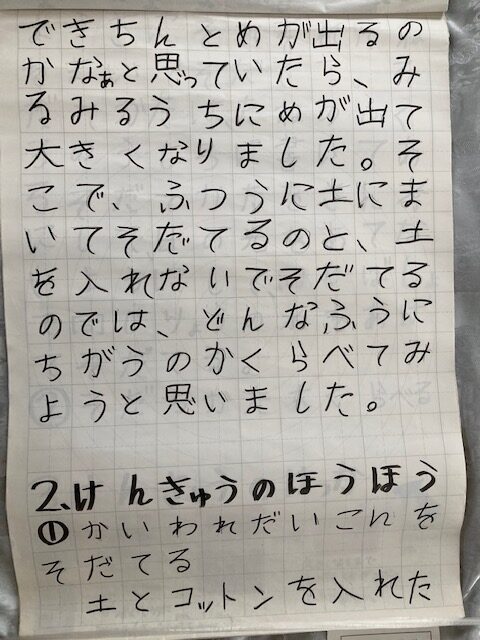 できちんとめが出るの
かなぁと思っていたら、み
るみるうちにめが出て
大きくなりました。そ
こで、ふつうに土にま
いてそだてるのと、土
を入れないでそだてる
のでは、どんなふうに
ちがうのかくらべてみ
ようと思いました。
2.けんきゅうのほうほう
①かいわれだいこんを
そだてる
土とコットンを入れた